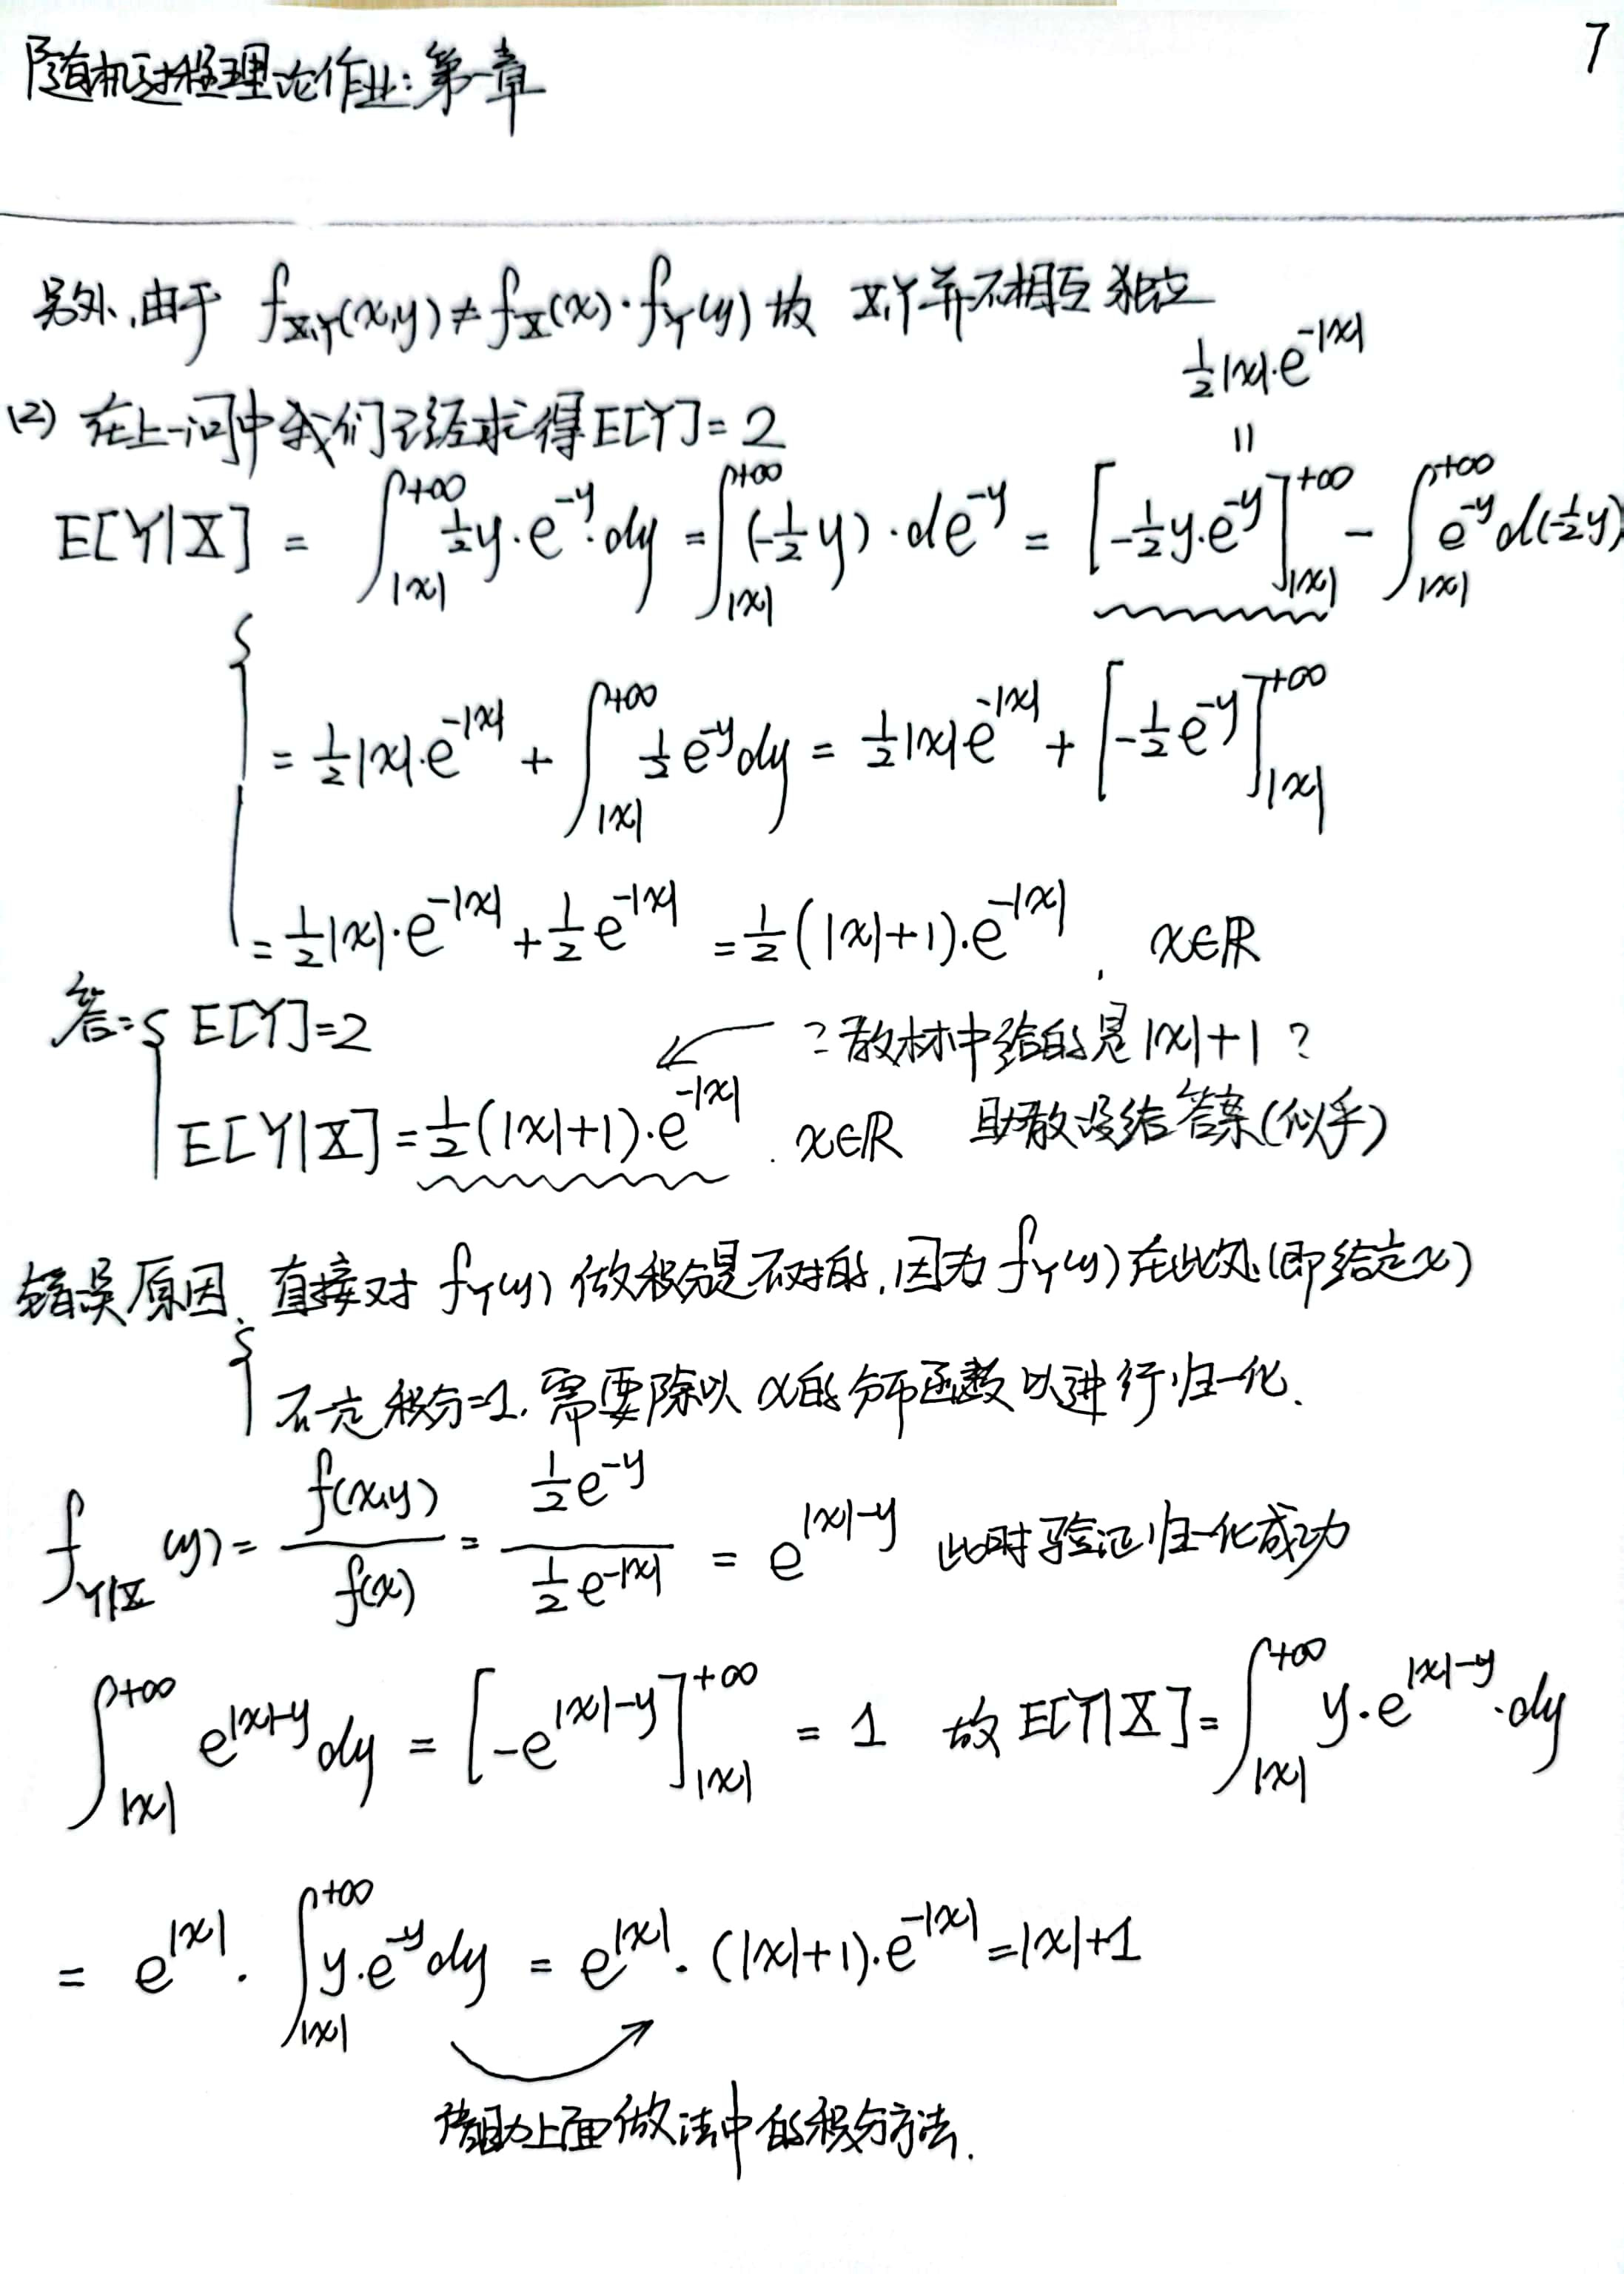 随机过程理论作业:第一章
7
另外,由于 f_{X,Y}(x,y) ≠ f_X(x)·f_Y(y) 故 X,Y并不相互独立
(2) 在上一问中我们已经求得E[Y]=2
½|x|·e^{-|x|}
=
E[Y|X] = ∫_{|x|}^{+∞} ½y·e^{-y}·dy = ∫_{|x|}^{+∞} (-½y)·de^{-y} = [-½y·e^{-y}]_{|x|}^{+∞} - ∫_{|x|}^{+∞} e^{-y}d(-½y)
= ½|x|·e^{-|x|} + ∫_{|x|}^{+∞} ½e^{-y}dy = ½|x|e^{-|x|} + [-½e^{-y}]_{|x|}^{+∞}
= ½|x|·e^{-|x|} + ½e^{-|x|} = ½(|x|+1)·e^{-|x|}, x∈ℝ
答: { E[Y]=2 ← ? 教材中给的是|x|+1 ?
E[Y|X] = ½(|x|+1)·e^{-|x|}. x∈ℝ 助教没给答案(似乎)
错误原因、直接对 f_Y(y) 做积分是不对的,因为 f_Y(y)在此处(即给定x)
不一定积分=1,需要除以x的分布函数以进行归一化.
f_{Y|X}(y) = f(x,y)/f(x) = ½e^{-y}/½e^{-|x|} = e^{|x|-y} 此时验证归一化成功
∫_{|x|}^{+∞} e^{|x|-y}dy = [-e^{|x|-y}]_{|x|}^{+∞} = 1 故 E[Y|X] = ∫_{|x|}^{+∞} y·e^{|x|-y}·dy
= e^{|x|}·∫_{|x|}^{+∞} y·e^{-y}dy = e^{|x|}·(|x|+1)·e^{-|x|} = |x|+1
借助上面做法中的积分方法.